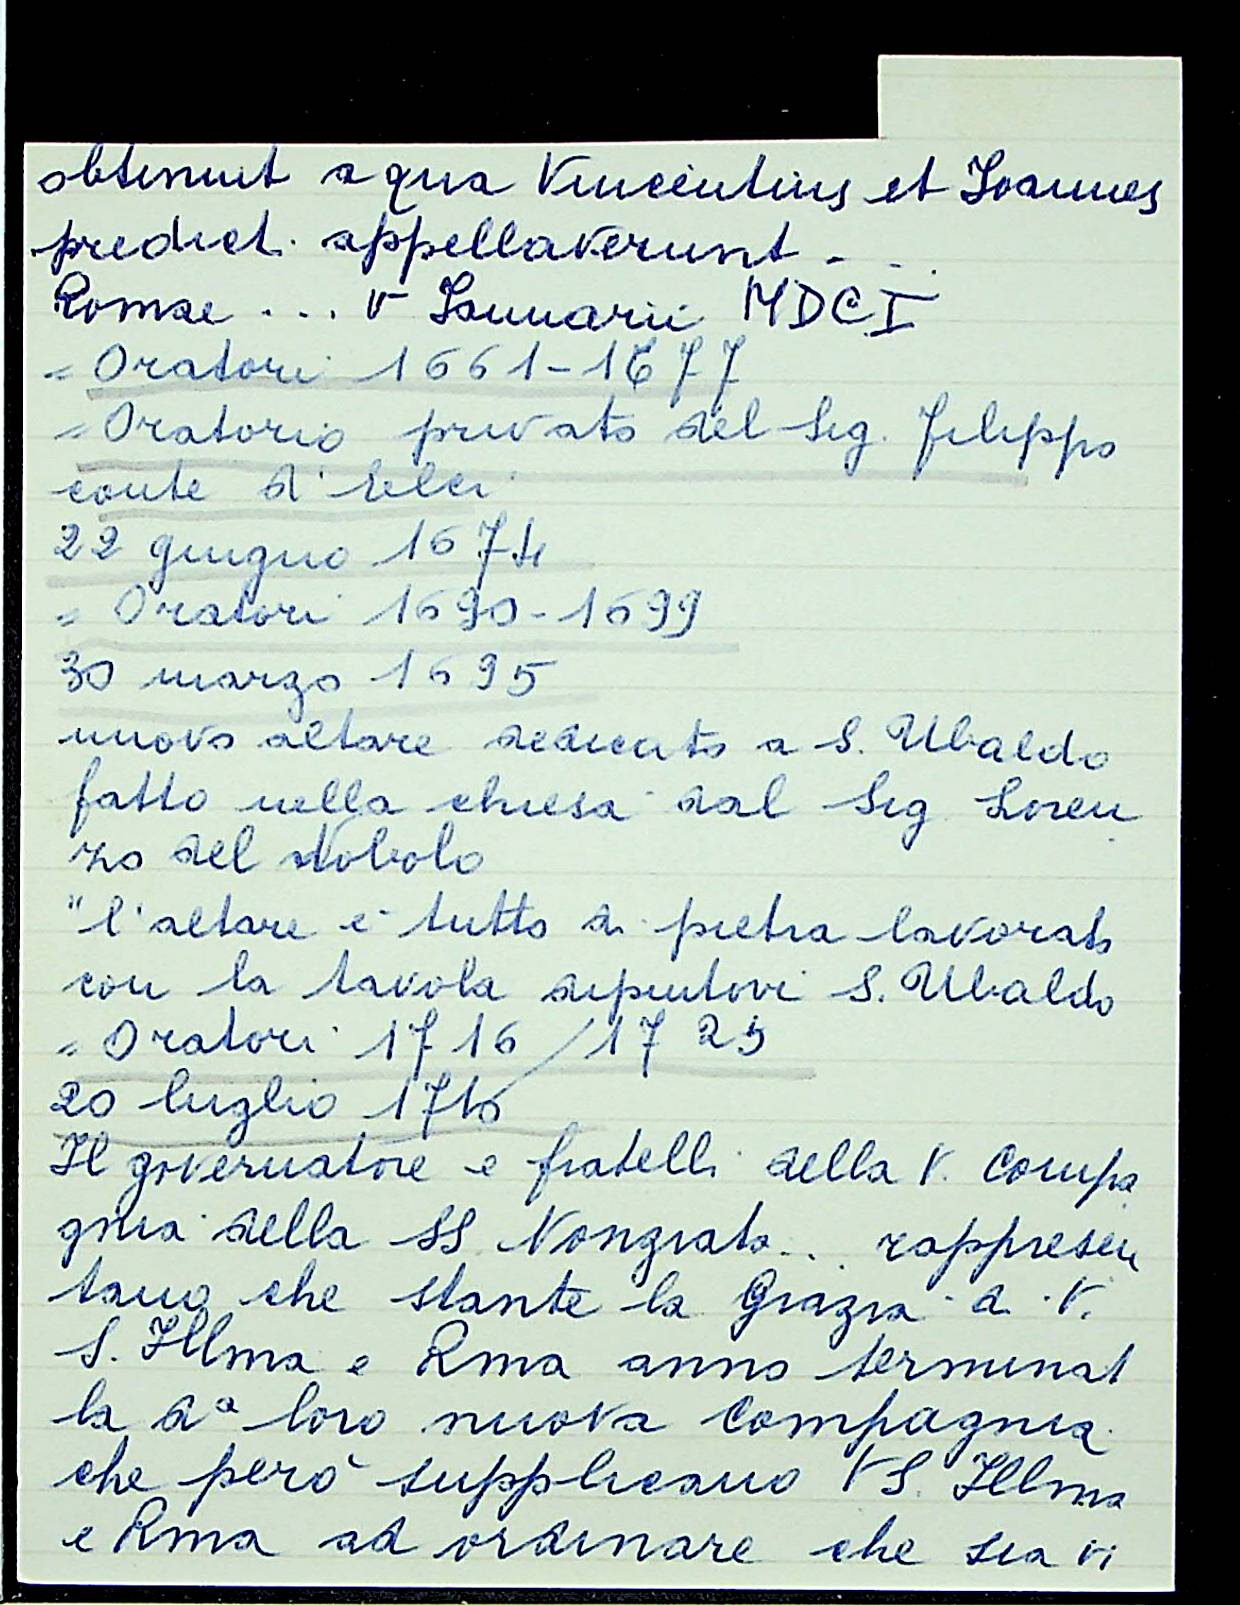 obtinuit a qua Vincentius et Joannes
predict. appellaverunt - . .
Romae ... V Januarii MDCI
= Oratori 1661-1677
= Oratorio privato del Sig. Filippo
conte d'Elci
22 giugno 1674
= Oratori 1690-1699
30 marzo 1695
nuovo altare dedicato a S. Ubaldo
fatto nella chiesa dal Sig Loren
zo del Nobolo
"l'altare è tutto di pietra lavorato
con la tavola dipintovi S. Ubaldo
= Oratori 1716/1725
20 luglio 1716
Il governatore e fratelli della V. Compa
gnia della SS Nonziata... rappresen
tano che stante la Grazia di V.
S. Illma e Rma anno terminat
la da loro nuova Compagnia
che però supplicano VS. Illma
e Rma ad ordinare che sia vi